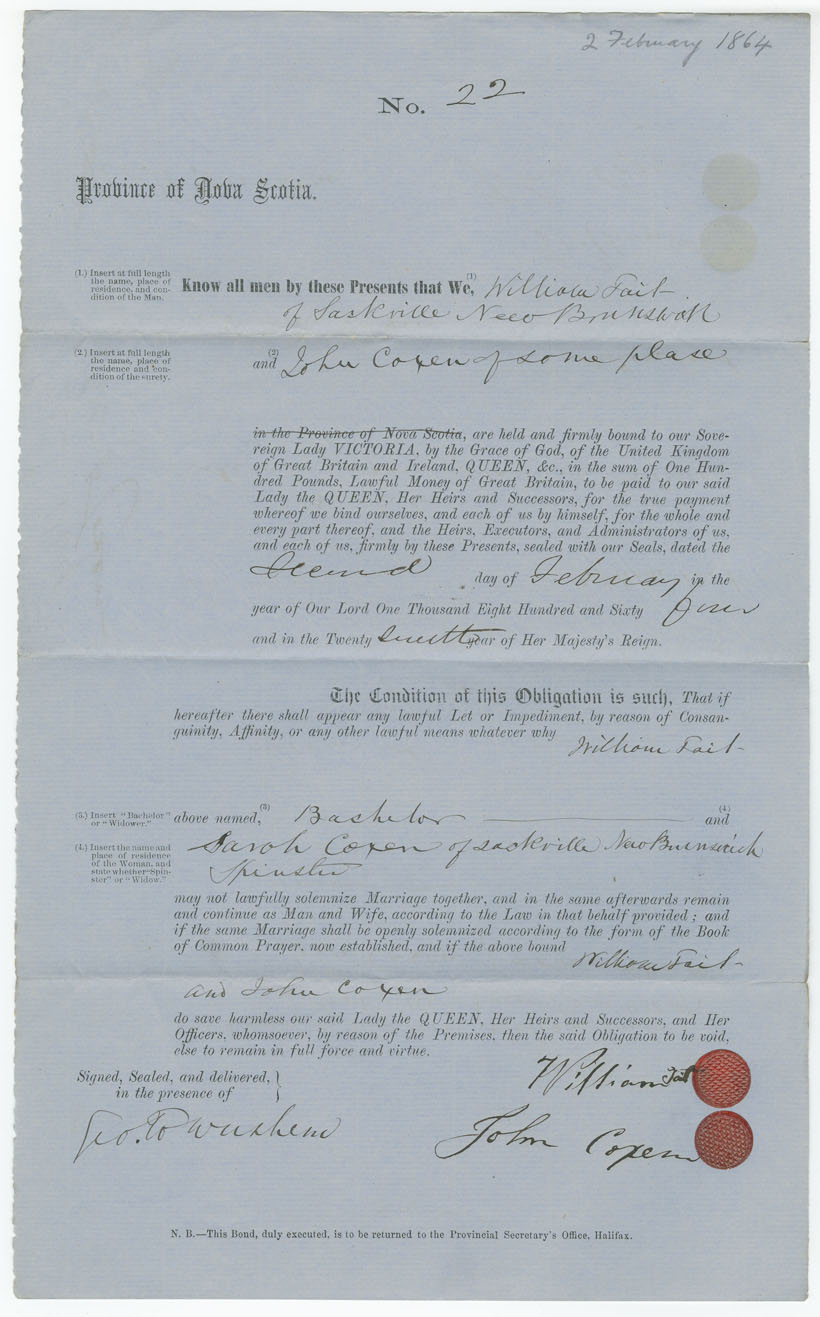 2 February 1864
No. 22
Province of Nova Scotia.
(1.) Insert at full length
the name, place of
residence, and con-
dition of the Man.
Know all men by these Presents that We, (1) William Tait
of Sackville New Brunswick
(2.) Insert at full length
the name, place of
residence and con-
dition of the surety.
and (2) John Coxen of some place
in the Province of Nova Scotia, are held and firmly bound to our Sove-
reign Lady VICTORIA, by the Grace of God, of the United Kingdom
of Great Britain and Ireland, QUEEN, &c., in the sum of One Hun-
dred Pounds, Lawful Money of Great Britain, to be paid to our said
Lady the QUEEN, Her Heirs and Successors, for the true payment
whereof we bind ourselves, and each of us by himself, for the whole and
every part thereof, and the Heirs, Executors, and Administrators of us,
and each of us, firmly by these Presents, sealed with our Seals, dated the
Second day of February in the
year of Our Lord One Thousand Eight Hundred and Sixty four
and in the Twenty year of Her Majesty's Reign.
The Condition of this Obligation is such, That if
hereafter there shall appear any lawful Let or Impediment, by reason of Consan-
guinity, Affinity, or any other lawful means whatever why
William Tait
(3.) Insert "Bachelor"
or "Widower."
above named, (3) Bachelor and (4)
(4.) Insert the name and
place of residence
of the Woman, and
state whether "Spin-
ster" or "Widow."
Sarah Coxen of Sackville New Brunswick
Spinster
may not lawfully solemnize Marriage together, and in the same afterwards remain
and continue as Man and Wife, according to the Law in that behalf provided; and
if the same Marriage shall be openly solemnized according to the form of the Book
of Common Prayer, now established, and if the above bound
William Tait
and John Coxen
do save harmless our said Lady the QUEEN, Her Heirs and Successors, and Her
Officers, whomsoever, by reason of the Premises, then the said Obligation to be void,
else to remain in full force and virtue.
Signed, Sealed, and delivered,
in the presence of
William Tait
Geo. Townshend
John Coxen
N. B.—This Bond, duly executed, is to be returned to the Provincial Secretary's Office, Halifax.